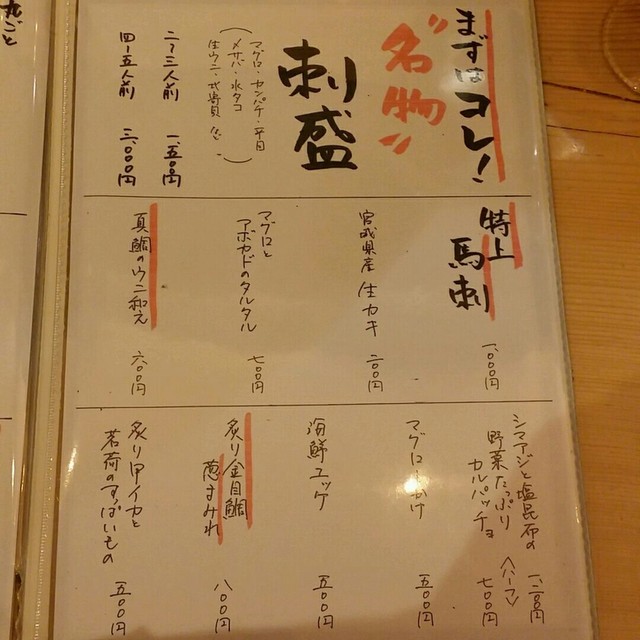 まずはコレ!
"名物"
刺盛
(マグロ・カンパチ・平目
〆サバ・水タコ
生ウニ・北寄貝 など)
二〜三人前 一、五〇〇円
四〜五人前 三、〇〇〇円
特上
馬刺
一、〇〇〇円
宮城県産 生カキ
二〇〇円
マグロと
アボカドのタルタル
七〇〇円
真鯛のウニ和え
六〇〇円
シマアジと塩昆布の
野菜たっぷり
カルパッチョ
一、二〇〇円
〈ハーフ〉
七〇〇円
五〇〇円
海鮮ユッケ
五〇〇円
炙り金目鯛
葱まみれ
八〇〇円
炙り甲イカと
茗荷のすっぱいもの
五〇〇円
丸ごと